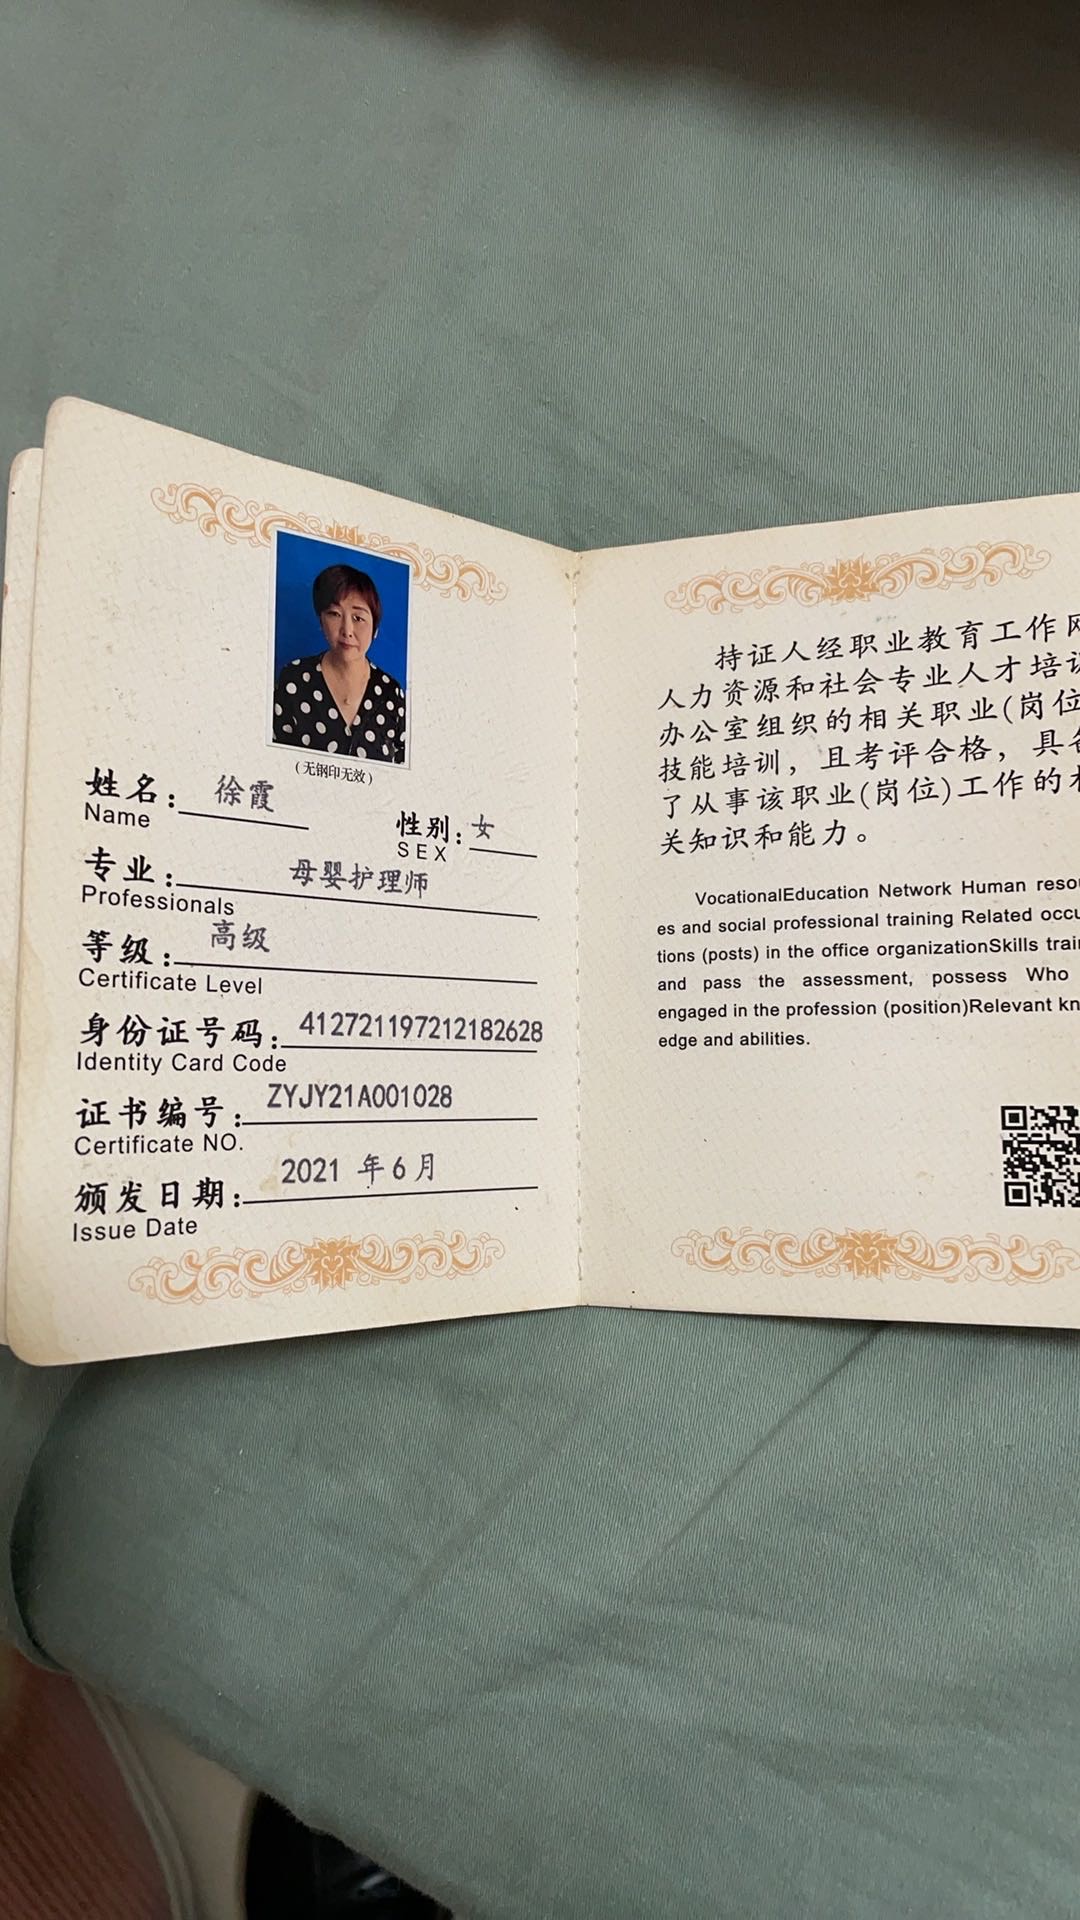 (无钢印无效)
姓名: 徐霞
Name
性别: 女
SEX
专业: 母婴护理师
Professionals
等级: 高级
Certificate Level
身份证号码: 412721197212182628
Identity Card Code
证书编号: ZYJY21A001028
Certificate NO.
颁发日期: 2021 年 6 月
Issue Date
持证人经职业教育工作网
人力资源和社会专业人才培训
办公室组织的相关职业(岗位
技能培训，且考评合格，具备
了从事该职业(岗位)工作的相
关知识和能力。
VocationalEducation Network Human resou
es and social professional training Related occu
tions (posts) in the office organizationSkills train
and pass the assessment, possess Who
engaged in the profession (position)Relevant kn
edge and abilities.